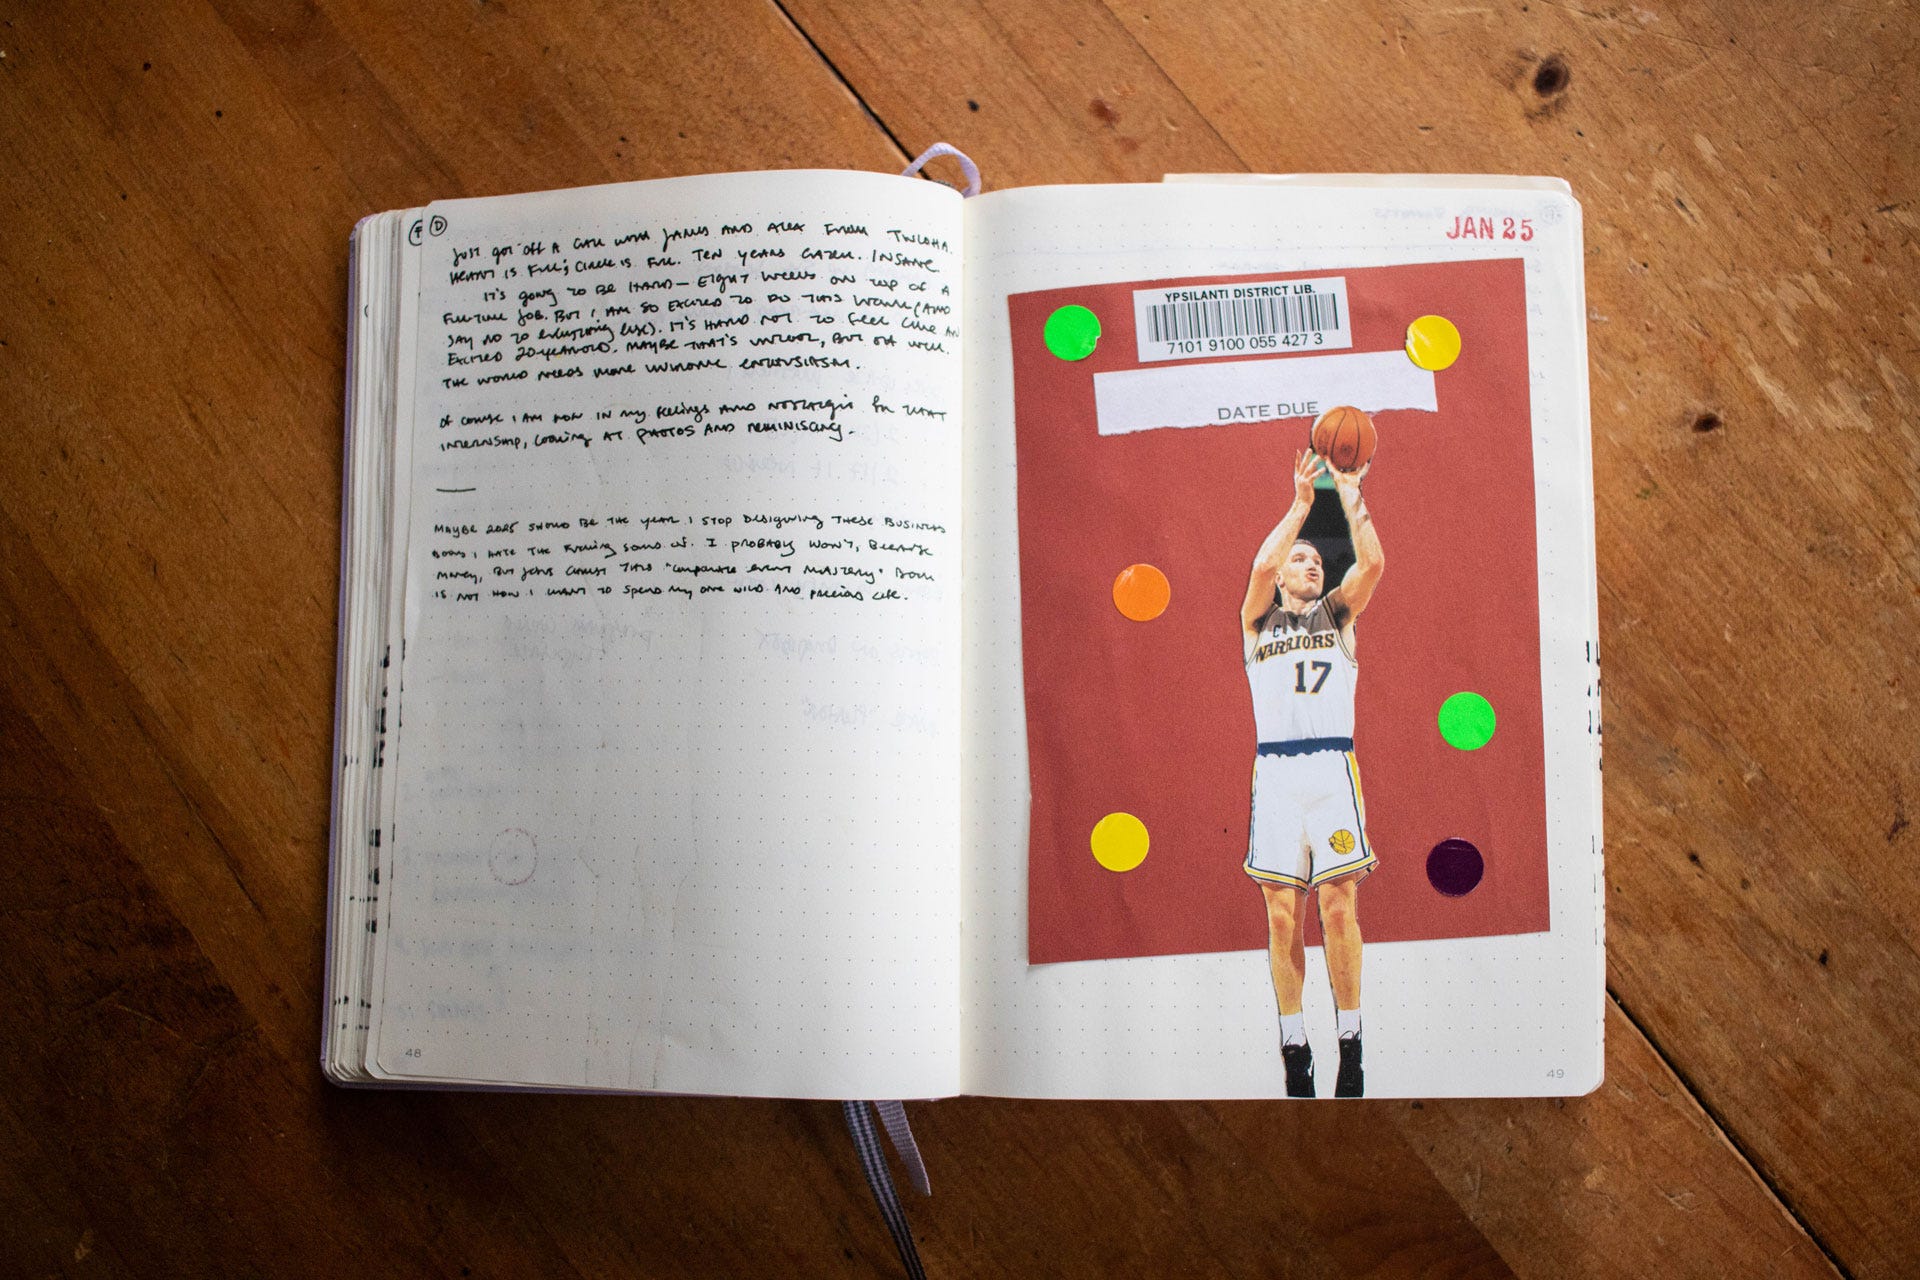 D
Just got off a call with James and Alex from TWLOHA.
Heart is full; circle is full. Ten years later. Insane.
It's going to be hard — eight weeks on top of a
full-time job. But I am so excited to do this work (and
say no to everything else). It's hard not to feel like an
excited 20-year-old. Maybe that's uncool, but oh well.
The world needs more uncool enthusiasm.
Of course I am now in my feelings and nostalgia for that
internship, looking at photos and reminiscing.
Maybe 2025 should be the year I stop designing these business
books I hate the fucking sound of. I probably won't, because
money, but Jesus Christ this "corporate event mastery" book
is not how I want to spend my one wild and precious life.
48
JAN 25
YPSILANTI DISTRICT LIB.
7101 9100 055 427 3
DATE DUE
WARRIORS
17
49